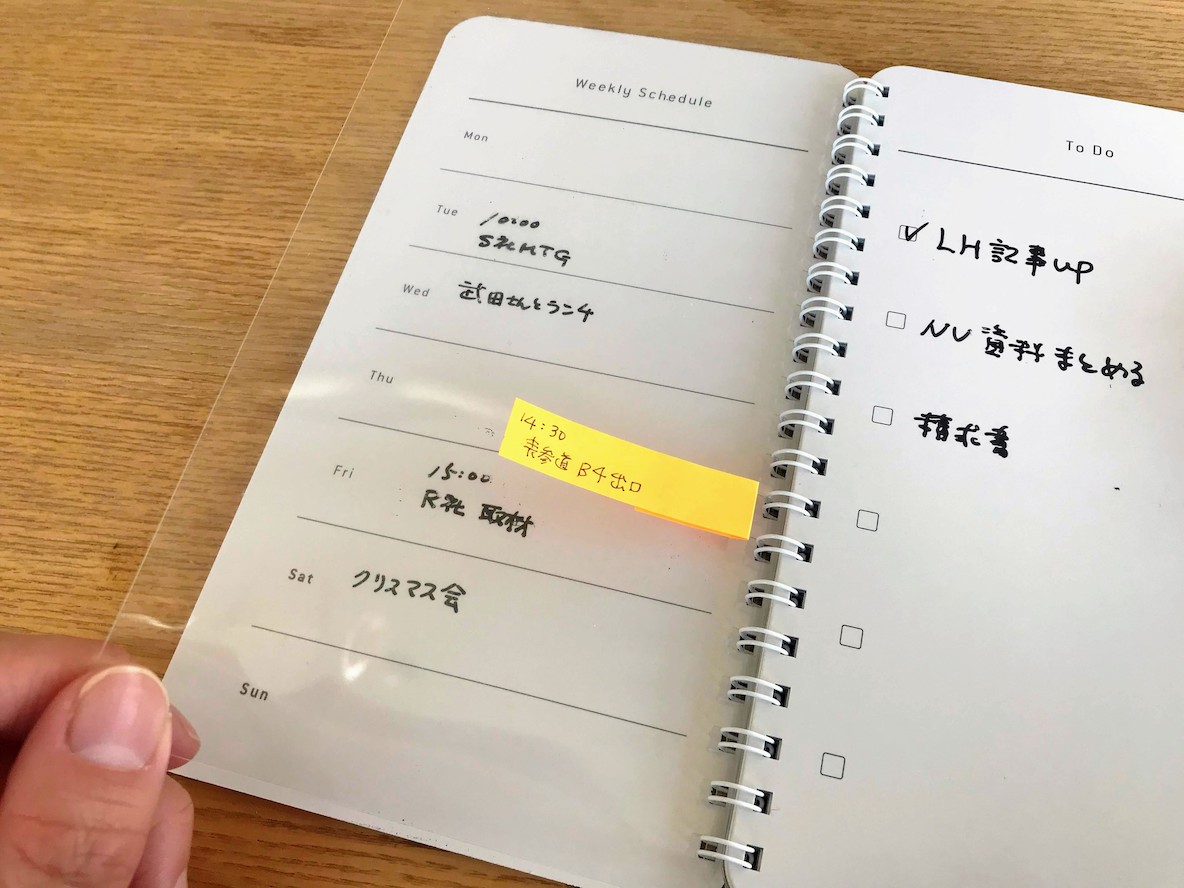 Weekly Schedule
Mon
Tue
10:00
S社MTG
Wed
武田さんとランチ
Thu
14:30
表参道 B4出口
Fri
15:00
R社 取材
Sat
クリスマス会
Sun
To Do
LH 記事up
NU 資料まとめる
請求書